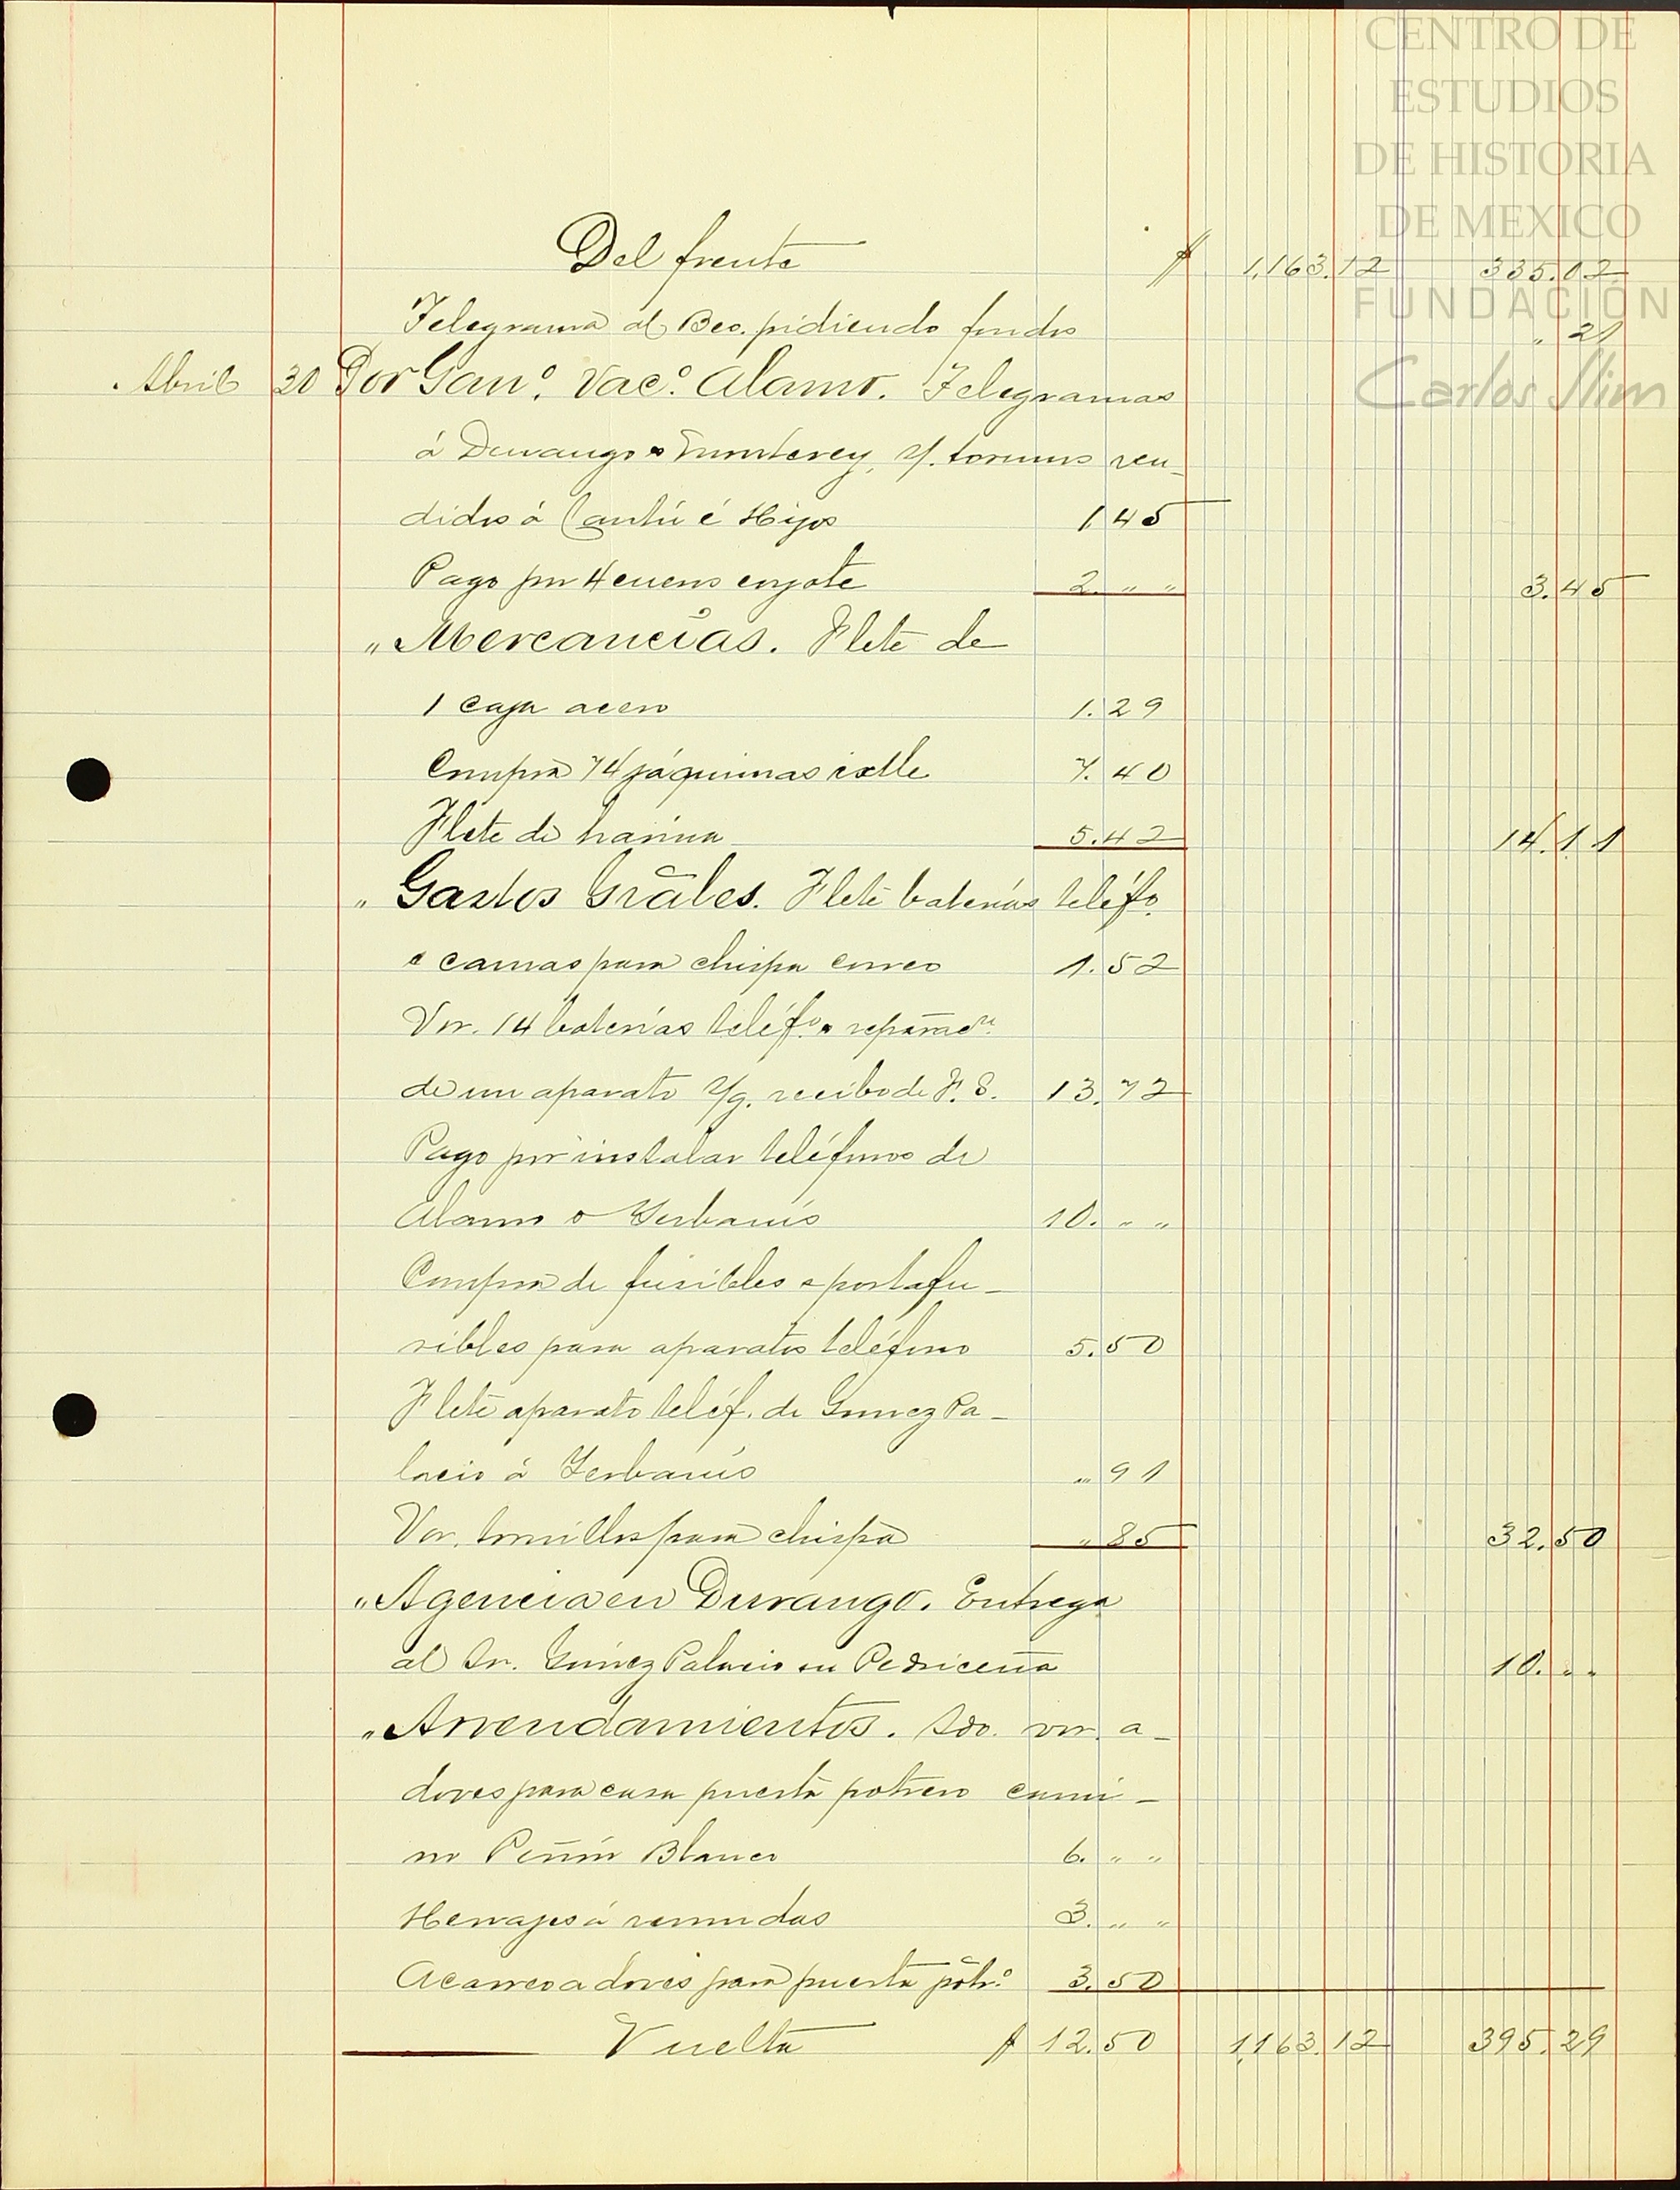 CENTRO DE
ESTUDIOS
DE HISTORIA
DE MEXICO
FUNDACIÓN
Carlos Slim
Del frente $ 1,163.12 335.02
Telegrama al Bco. pidiendo fondos " 21
Abril 30 Por Gan.º Vac.º Alamo. Telegramas
á Durango o Monterey, y. toros ven-
didos á Cantú é Hijos 1.45
Pago por 4 cueros coyote 2. " " 3.45
" Mercancías. Flete de
1 caja acero 1.29
Compra 74 jáquimas ixtle 7.40
Flete de harina 5.42 14.11
" Gastos Gráles. Flete baterías teléfo.
camas para chispa correo 1.52
Vor. 14 baterías teléf.º reparac.n
de un aparato s/g. recibo de F. S. 13.72
Pago por instalar teléfonos de
Alamo o Yerbanís 10. " "
Compra de fusibles o portafu-
sibles para aparatos teléfono 5.50
Flete aparato teléf. de Gomez Pa-
lacio á Yerbanís " 91
Vor. tornillos para chispa " 85 32.50
" Agencia en Durango. Entrega
al Sr. Gómez Palacio en Pedriceña 10. " "
" Arrendamientos. vor. a-
doves para casa puerta potrero cami-
no Peñón Blanco 6. " "
Herrajes á remudas 3. " "
Acarreo adoves para puerta potr.º 3.50
Vuelta $ 12.50 1,163.12 395.29